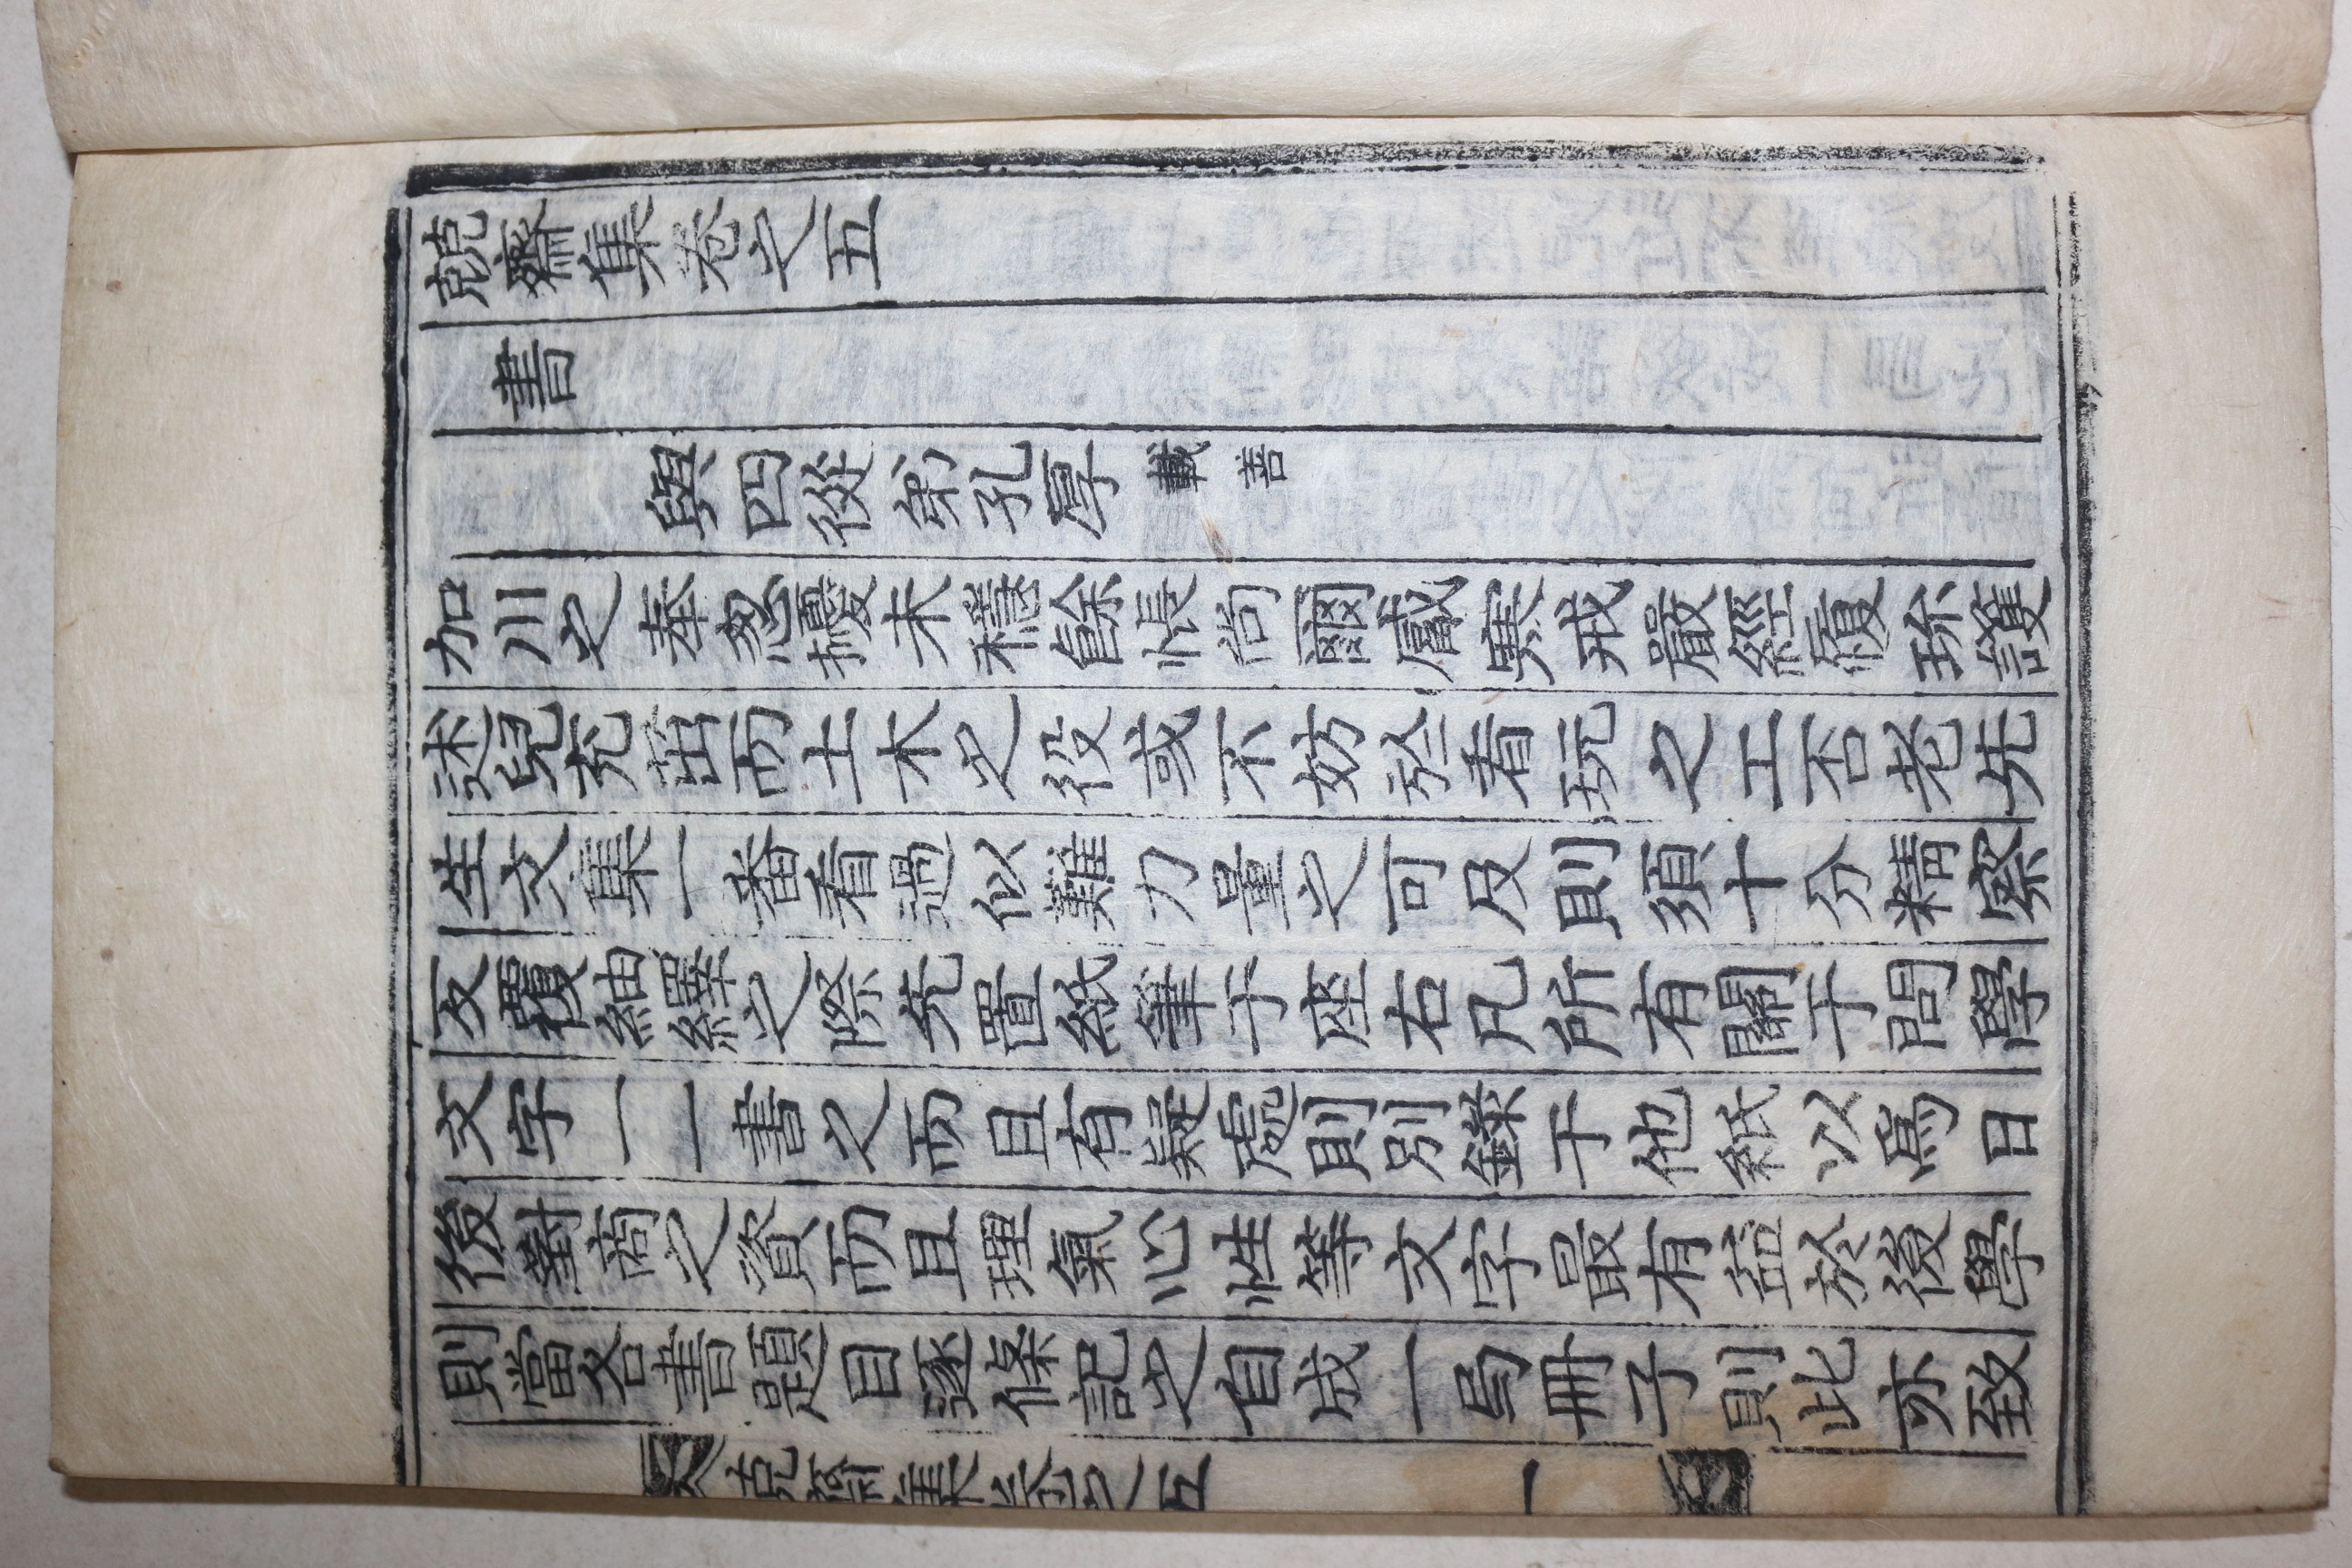 兢齋集卷之五
書
與四從弟孔厚 載善
加川之奉怱擾未穩餘悵尙爾歲寒戒嚴經履珍護
迷兒充茁而土木之役或不妨於看玩之工否老先
生文集一番看過似難力量之可及則須十分精察
反覆紬繹之際先置紙筆于座右凡所有關于問學
文字一一書之而且有疑處則別錄于他紙以爲日
後對商之資而且理氣心性等文字最有益於後學
則當各書題目逐條記之自成一局冊子則此亦致
兢齋集卷之五 一